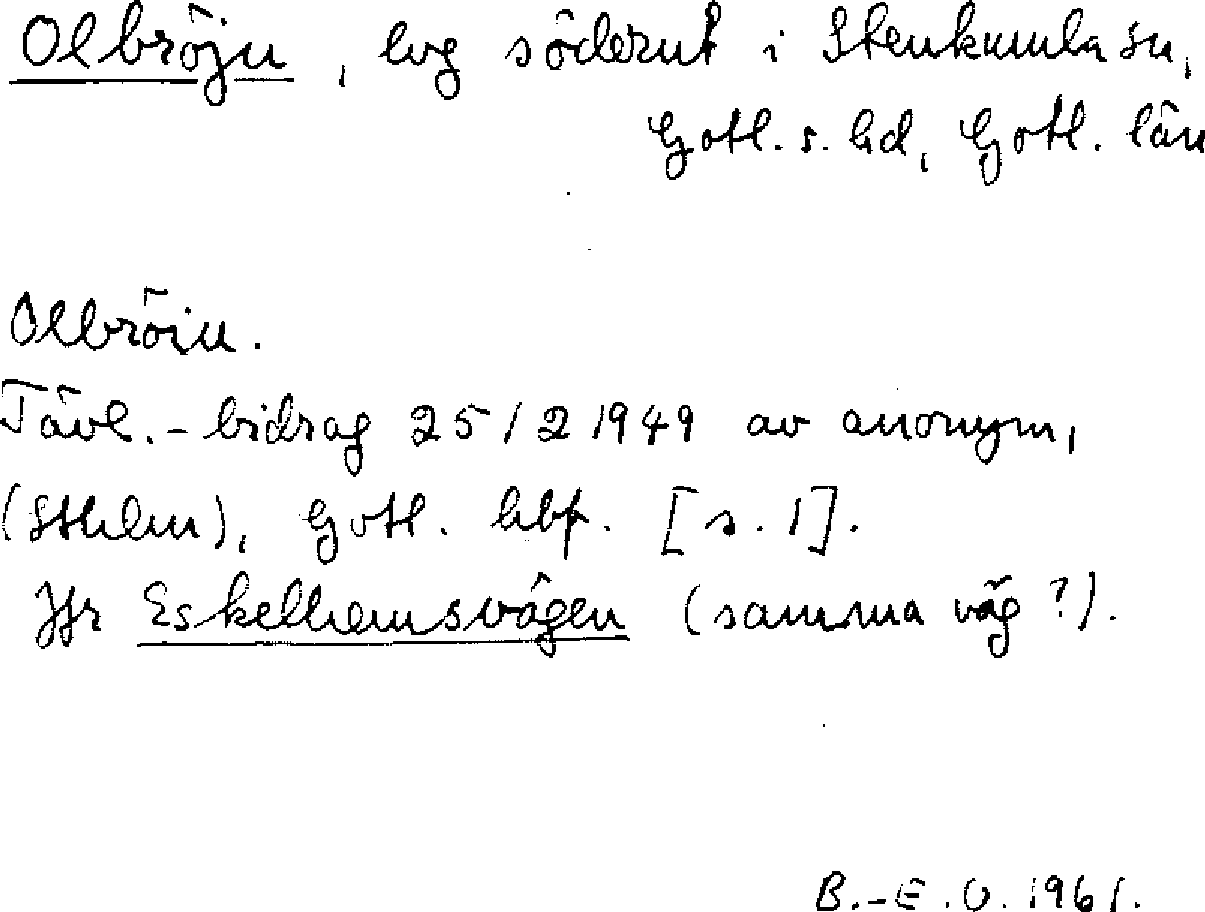 Olbröju, lvg söderut i Stenkumla sn,
Gotl. s. hd, Gotl. län
Olbröiu.
Tävl.-bidrag 25/2 1949 av anonym,
(Sthlm), Gotl. hbf. [s. 1].
Jfr Eskelhemsvägen (samma väg?).
B.-E.O. 1961.